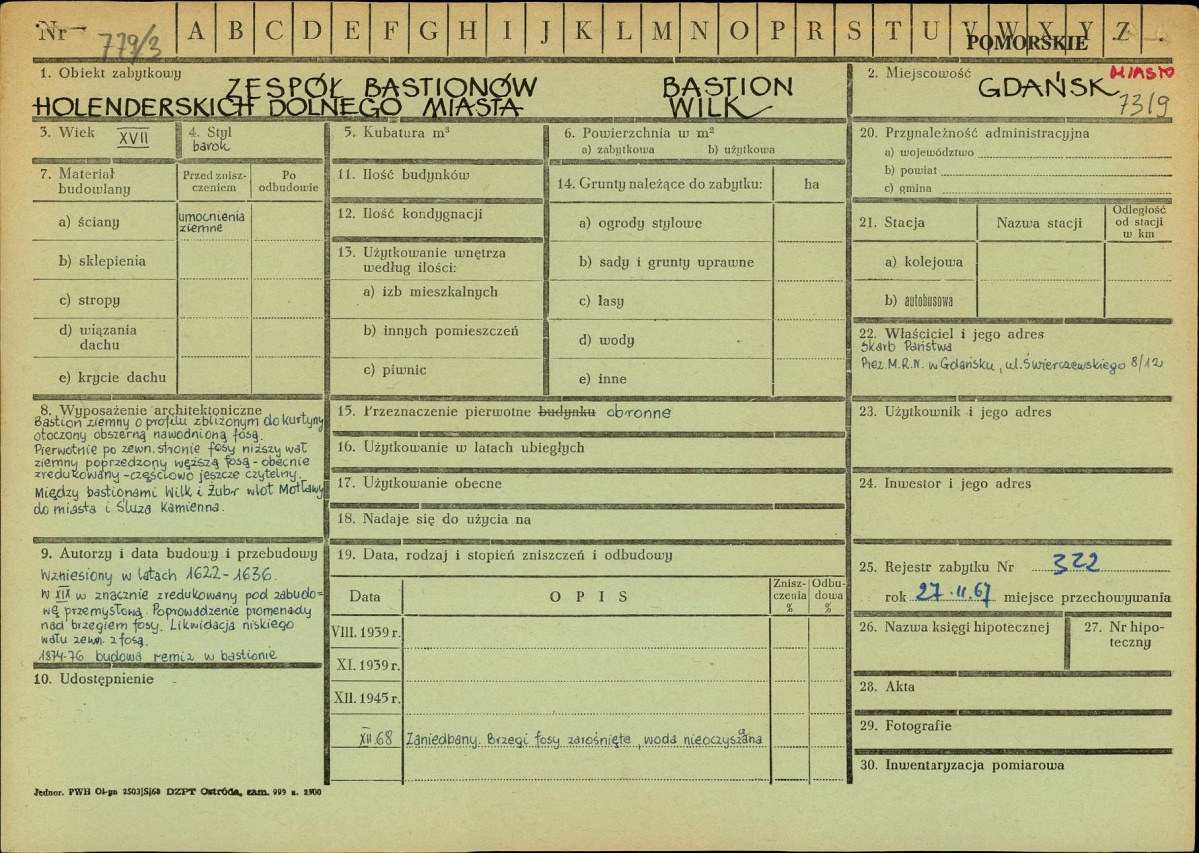 Nr 779/3 A B C D E F G H I J K L M N O P R S T U V W X Y Z
POMORSKIE
1. Obiekt zabytkowy
ZESPÓŁ BASTIONÓW BASTION
HOLENDERSKICH DOLNEGO MIASTA WILK
2. Miejscowość
GDAŃSK MIASTO
73/9
3. Wiek XVII
4. Styl
barok
5. Kubatura m³
6. Powierzchnia w m²
a) zabytkowa b) użytkowa
7. Materiał budowlany
Przed zniszczeniem
Po odbudowie
a) ściany umocnienia
ziemne
b) sklepienia
c) stropy
d) wiązania
dachu
e) krycie dachu
11. Ilość budynków
12. Ilość kondygnacji
13. Użytkowanie wnętrza
według ilości:
a) izb mieszkalnych
b) innych pomieszczeń
c) piwnic
14. Grunty należące do zabytku: ha
a) ogrody stylowe
b) sady i grunty uprawne
c) lasy
d) wody
e) inne
20. Przynależność administracyjna
a) województwo
b) powiat
c) gmina
21. Stacja Nazwa stacji Odległość
od stacji
w km
a) kolejowa
b) autobusowa
22. Właściciel i jego adres
Skarb Państwa
Prez. M.R.N. w Gdańsku, ul. Świerczewskiego 8/12
8. Wyposażenie architektoniczne
Bastion ziemny o profilu zbliżonym do kurtyny
otoczony obszerną nawodnioną fosą.
Pierwotnie po zewn. stronie fosy niższy wał
ziemny poprzedzony węższą fosą - obecnie
zredukowany - częściowo jeszcze czytelny.
Między bastionami Wilk i Żubr wlot Motławy
do miasta i Śluza Kamienna.
9. Autorzy i data budowy i przebudowy
Wzniesiony w latach 1622-1636.
W XIX w znacznie zredukowany pod zabudo-
wę przemysłową. Poprowadzenie promenady
nad brzegiem fosy. Likwidacja niskiego
wału zewn. z fosą.
1874-76 budowa remiz w bastionie
10. Udostępnienie -
15. Przeznaczenie pierwotne budynku obronne
16. Użytkowanie w latach ubiegłych
17. Użytkowanie obecne
18. Nadaje się do użycia na
19. Data, rodzaj i stopień zniszczeń i odbudowy
Data OPIS Znisz-
czenia
% Odbu-
dowa
%
VIII. 1939 r.
XI. 1939 r.
XII. 1945 r.
XII.68 Zaniedbany. Brzegi fosy zarośnięte, woda nieoczyszczana
23. Użytkownik i jego adres
24. Inwestor i jego adres
25. Rejestr zabytku Nr 322
rok 27.II.67 miejsce przechowywania
26. Nazwa księgi hipotecznej
27. Nr hipo-
teczny
28. Akta
29. Fotografie
30. Inwentaryzacja pomiarowa
Jednor. PWH Ol-gn 2503/S/68 DZPT Ostróda, zam. 999 n. 2500